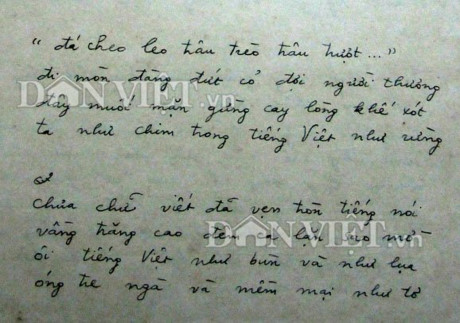 "đá cheo leo trâu trèo trâu trượt ..."
đi mòn đàng đứt cỏ đợi người thương
DÂNVIỆT.vn
đây muối mặn gừng cay lòng khế xót
ta như chim trong tiếng Việt như rừng
2
Chưa chữ viết đã vẹn tròn tiếng nói
vầng trăng cao đêm cá lặn sao mờ
DÂNVIỆT.vn
ôi tiếng Việt như bùn và như lụa
óng tre ngà và mềm mại như tơ